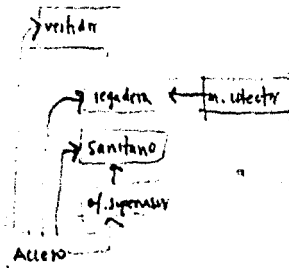 vestidor
regadera
sanitario
of. supervisor
Acceso